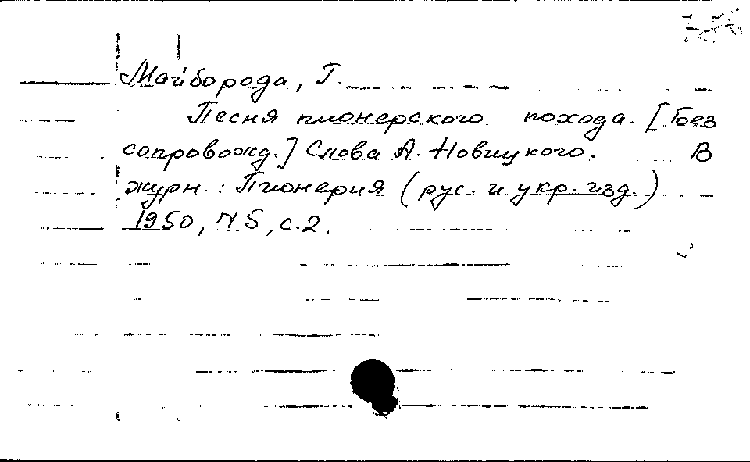 Майборода, Г.
Песня пионерского похода. [Без
сопровожд.] Слова А. Новицкого. В
журн.: Пионерия (рус. и укр. изд.)
1950, N 5, с. 2.